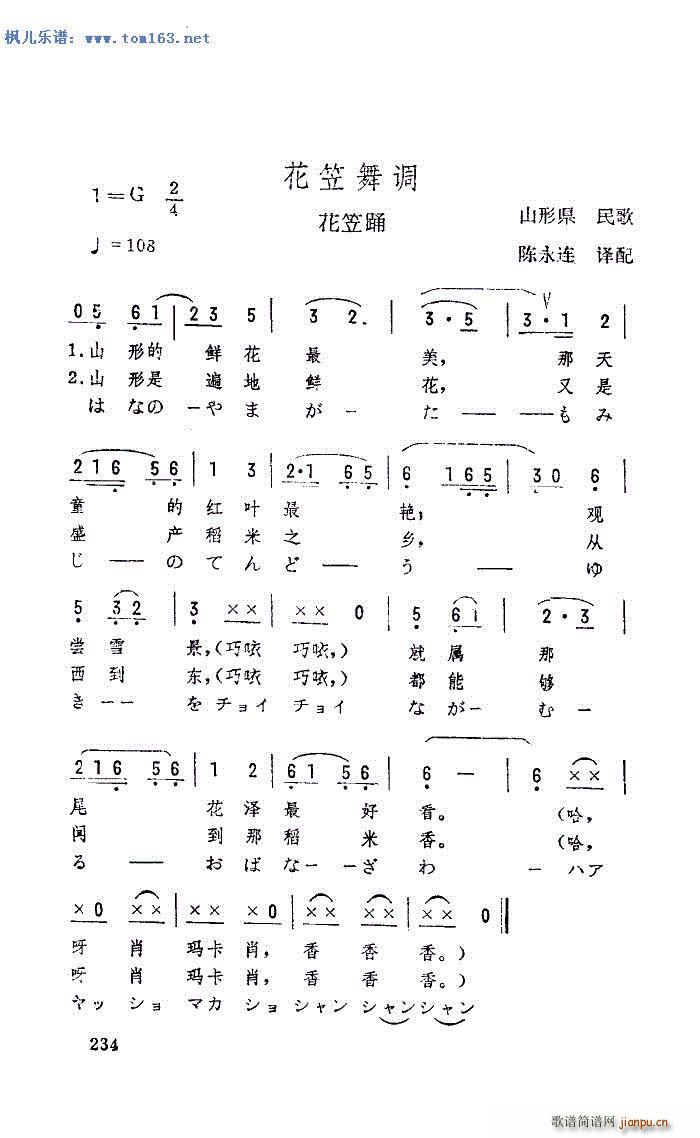 枫儿乐谱: www.tom163.net
花笠舞调
1=G 2/4
花笠踊
山形県 民歌
♩=108
陈永连 译配
0 5 6 1 | 2 3 5 | 3 2. | 3·5 | 3·1 2 |
1.山 形的 鲜花 最 美, 那天
2.山 形是 遍地 鲜 花, 又是
はなの－やま が－ た－－もみ
2 1 6 5 6 | 1 3 | 2·1 6 5 | 6 1 6 5 | 3 0 6 |
童 的红叶最 艳; 观
盛 产稻米之 乡, 从
じ－－のてんど－－う－－ゆ
5 3 2 | 3 ×× | ×× 0 | 5 6 i | 2·3 |
尝雪 景,(巧咳 巧咳,) 就属 那
西到 东,(巧咳 巧咳,) 都能 够
き－－をチョイ チョイ なが－ む－
2 1 6 5 6 | 1 2 | 6 1 5 6 | 6 － | 6 ×× |
尾 花泽最 好看。 (哈,
闻 到那稻 米香。 (哈,
る－－おばな－－ざわ －ハア
× 0 ×× | ×× × 0 | ×× ×× | ×× 0 ‖
呀 肖 玛卡肖, 香 香 香。)
呀 肖 玛卡肖, 香 香 香。)
ヤッ ショ マカ ショ シャン シャンシャン
234
歌谱简谱网
jianpu.cn